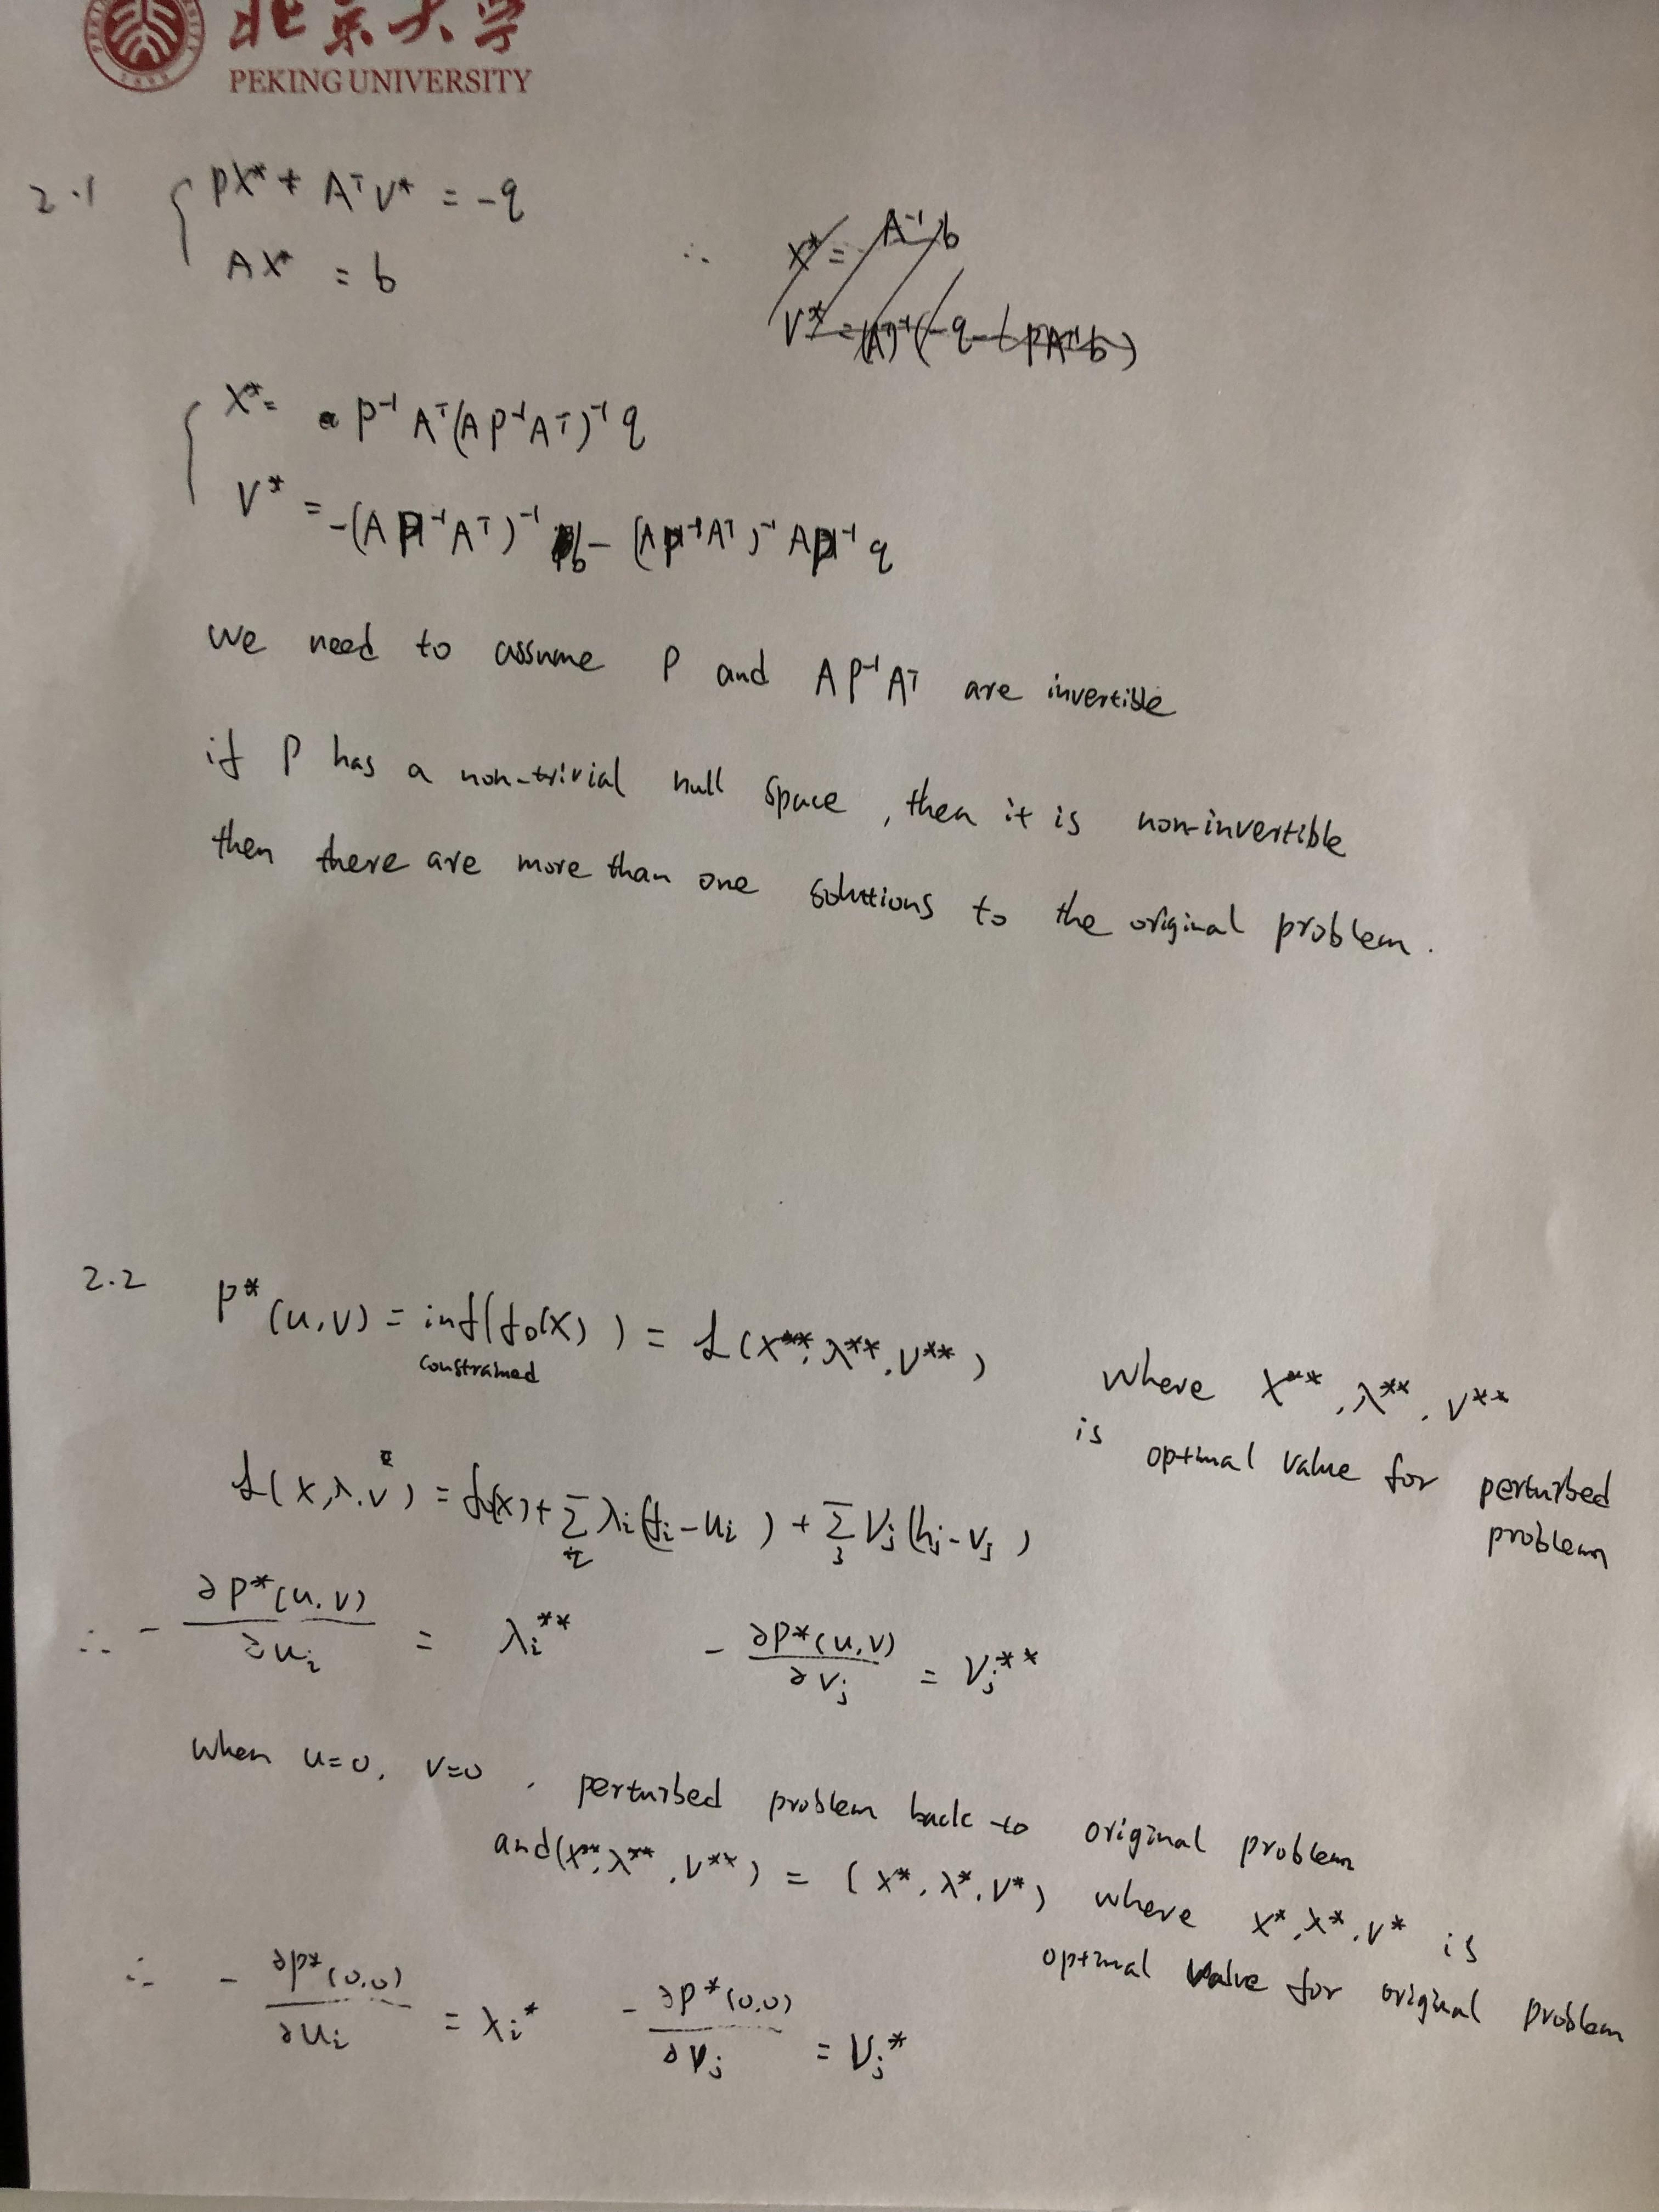 北京大学
PEKING UNIVERSITY
2.1 { PX* + Aᵀν* = -q
AX* = b
∴ X* = A⁻¹b
V* = (Aᵀ)⁻¹(-q-(PA⁻¹b)
{ X* = P⁻¹Aᵀ(AP⁻¹Aᵀ)⁻¹q
V* = -(AP⁻¹Aᵀ)⁻¹b - (AP⁻¹Aᵀ)⁻¹AP⁻¹q
We need to assume P and AP⁻¹Aᵀ are invertible
if P has a non-trivial null space, then it is non-invertible
then there are more than one solutions to the original problem.
2.2 P*(u,v) = inf(f₀(x)) = L(x**, λ**, ν**) Where x**, λ**, ν**
constrained
is optimal value for perturbed
problem
L(x,λ,ν) = f₀(x) + Σᵢ λᵢ(fᵢ-uᵢ) + Σⱼ νⱼ(hⱼ-vⱼ)
∴ -∂P*(u,v)/∂uᵢ = λᵢ** -∂P*(u,v)/∂vⱼ = νⱼ**
When u=0, v=0, perturbed problem back to original problem
and (x**, λ**, ν**) = (x*, λ*, ν*) where x*, λ*, ν* is
optimal value for original problem
∴ -∂P*(0,0)/∂uᵢ = λᵢ* -∂P*(0,0)/∂vⱼ = νⱼ*